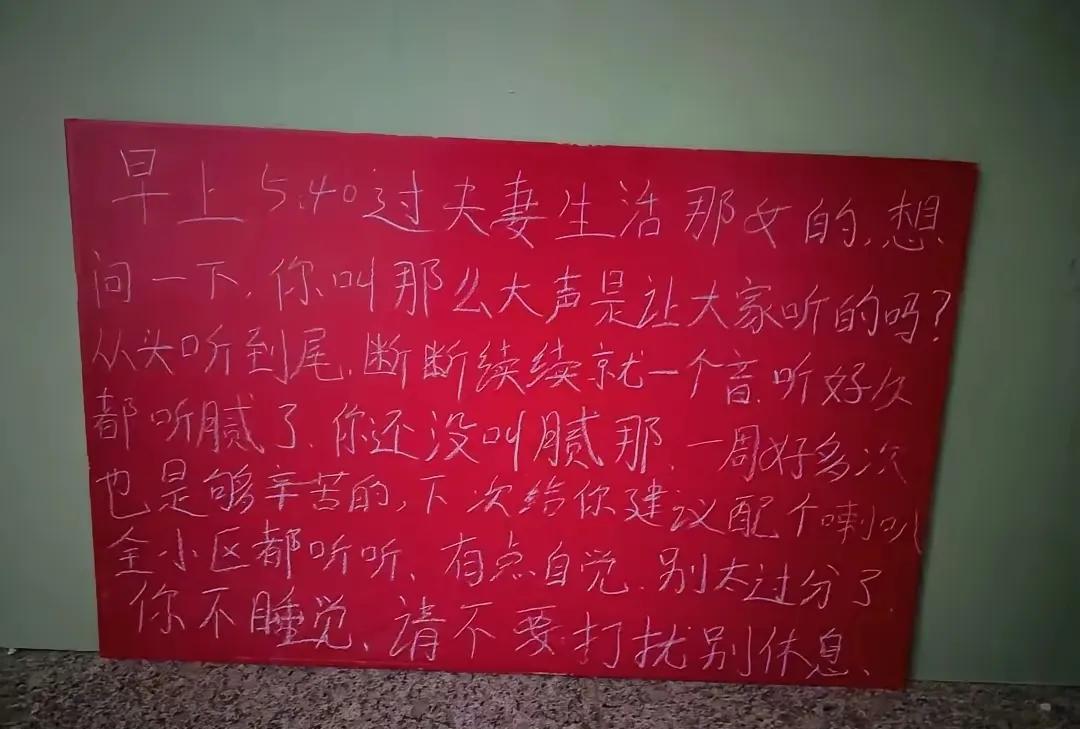 早上5.40过夫妻生活那女的,想
问一下,你叫那么大声是让大家听的吗?
从头听到尾,断断续续就一个音,听好久
都听腻了、你还没叫腻那、一周好多次
也是够辛苦的,下次给你建议配个喇叭
全小区都听听、有点自觉、别太过分了.
你不睡觉、请不要打扰别休息、